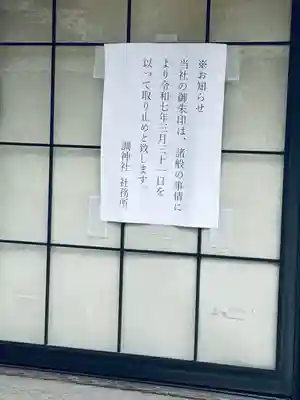 ※お知らせ
当社の御朱印は、諸般の事情に
より令和七年三月三十一日を
以って取り止めと致します。
調神社 社務所